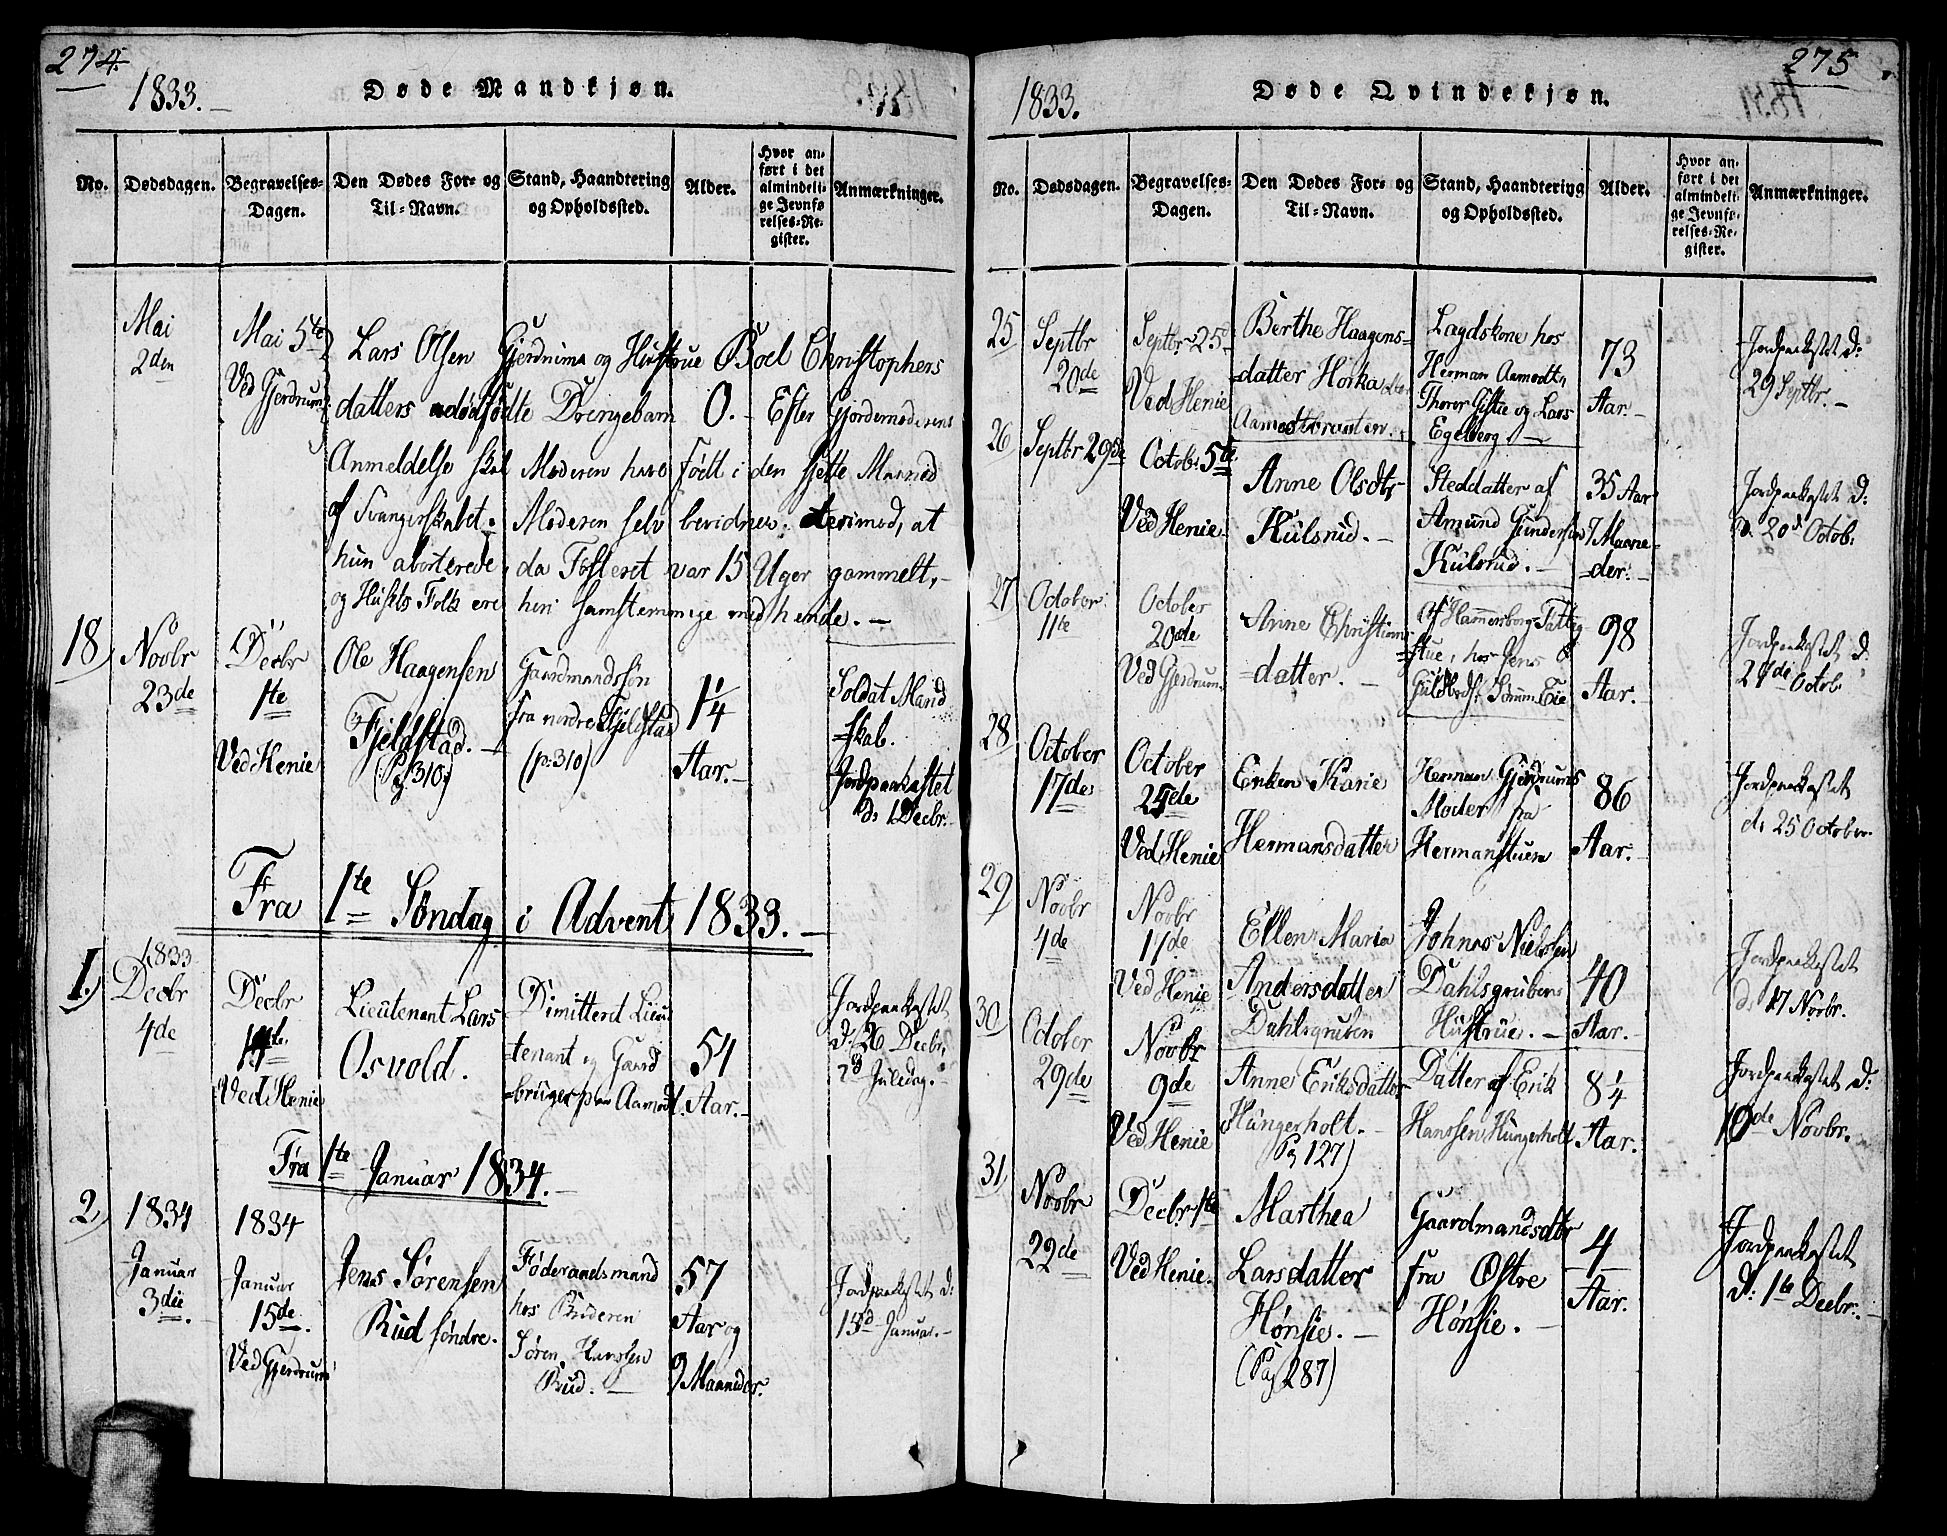 274.
1833.
Døde Mandkjøn.
No.
Dødsdagen.
Begravelses-
Dagen.
Den Dødes For- og
Til-Navn.
Stand, Haandtering
og Opholdssted.
Alder.
Hvor an-
ført i det
almindeli-
ge Jevnfø
relses-Re-
gister.
Anmærkninger.
Mai
2den
Mai 5te
Ved Gjerdrum
Lars Olsen Gjerdnims og Hustrue Boel Christophers
datters dødfødte Drengebarn 0. - Efter Gjordemoderens
Anmeldelse skal Moderen have født i den sjette Maaned
af Svangerskabet. Moderen selv bevidner derimod, at
hun aborterede, da Fosteret var 15 Uger gammelt,
og Husets Folk ere heri samstemmige med hende. -
18)
Novbr
23de
Decbr
1te
Ved Henie
Ole Haagensen
Fjeldstad. -
(Pg 310)
Gaardmandssøn
fra nordre Fjeldstad
(p. 310)
1 1/4
Aar. -
Soldat Mand
=skab.
Jordpaakastet
d. 1 Decbr.
Fra 1te Søndag i Advent 1833. -
I.)
1833
Decbr
4de
Decbr
Ved Henie
Lieutenant Lars
Osvold.
Dimitterd Lieu
tenant og Gaard
=bruger paa Aamodt.
54
Aar. -
Jordpaakastet
d. 26 Decbr,
2d Juledag. -
Fra 1te Januar 1834. -
2)
1834
Januar
3die.
1834
Januar
15de.
Ved Gjerdrum
Jens Sørensen
Rud søndre.
Føderaadsmand
hos
Søren
Rud. -
57
Aar og
9 Maaneder.
Jordpaakastet d:
15d Januar. -
275
1833.
Døde Qvindekjøn.
No.
Dødsdagen.
Begravelses-
Dagen.
Den Dødes For- og
Til-Navn.
Stand, Haandtering
og Opholdssted.
Alder.
Hvor an-
ført i det
almindeli-
ge Jevnfø-
relses-Re-
gister.
Anmærkninger.
25
Septbr
20de
Septbr 25
Ved Henie
Berthe Haagens=
=datter Horka
Lagdskone hos
Herman Aamodt,
Thorer Gistie og Lars
Egeberg -
73
Aar. -
Jordpaakastet d:
29 Septbr. -
26
Septbr 29de
Octob: 5te
Ved Henie
Anne Olsdtr
Kulsrud. -
Steddatter af
Amund Gundersen
Kulsrud. -
35 Aar
7 Maane=
=der. -
Jordpaakastet d:
20d Octob:
27
October
11te
October
20de
Ved Gjerdrum
Anne Christians
=datter. -
Af Hammersborg Fattig
=stue, hos Jens
98
Aar. -
Jordpaakastet d:
Octob
28
October
17de
October
25de
Ved Henie
Enken Karie
Hermansdatter
Herman Gjerdrums
Moder fra
Hermanstuen
86
Aar. -
Jordpaakastet
d. 25 October.
29
Novbr
4de
Novbr
17de
Ved Henie
Ellen Maria
Andersdatter
Dahlsgruben
Johnas Nielsen
Dahlsgrubens
Hustrue. -
40
Aar. -
Jordpaakastet
d. 17 Novbr.
30
October
29de
Novbr
9de
Ved Henie
Anne Eriksdatter
Hungerholt. -
(Pg 127)
Datter af Erik
Hanssen Hungerholt
8 1/4
Aar.
Jordpaakastet d:
10de Novbr.
31
Novbr
22de
Decbr 1te
Ved Henie.
Marthea
Larsdatter
Hønsie. -
(Pag 287)
Gaardmandsdtr
fra Østre
Hønsie. -
4
Aar.
Jordpaakastet
d: 1te Decbr. -